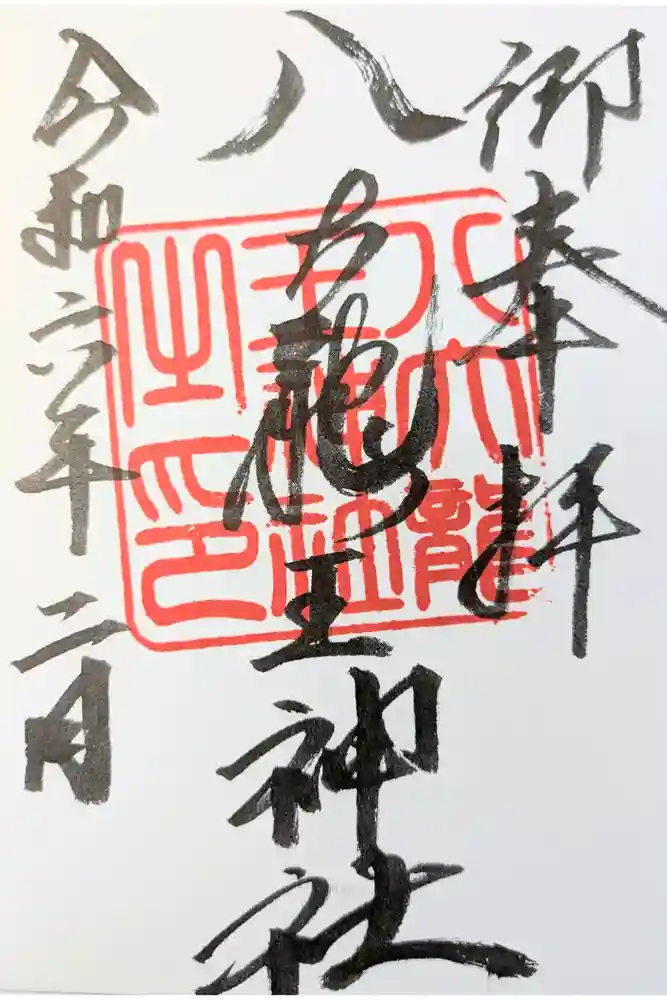 御奉拝
八大龍王神社
令和六年二月
八大龍
王神社
之印